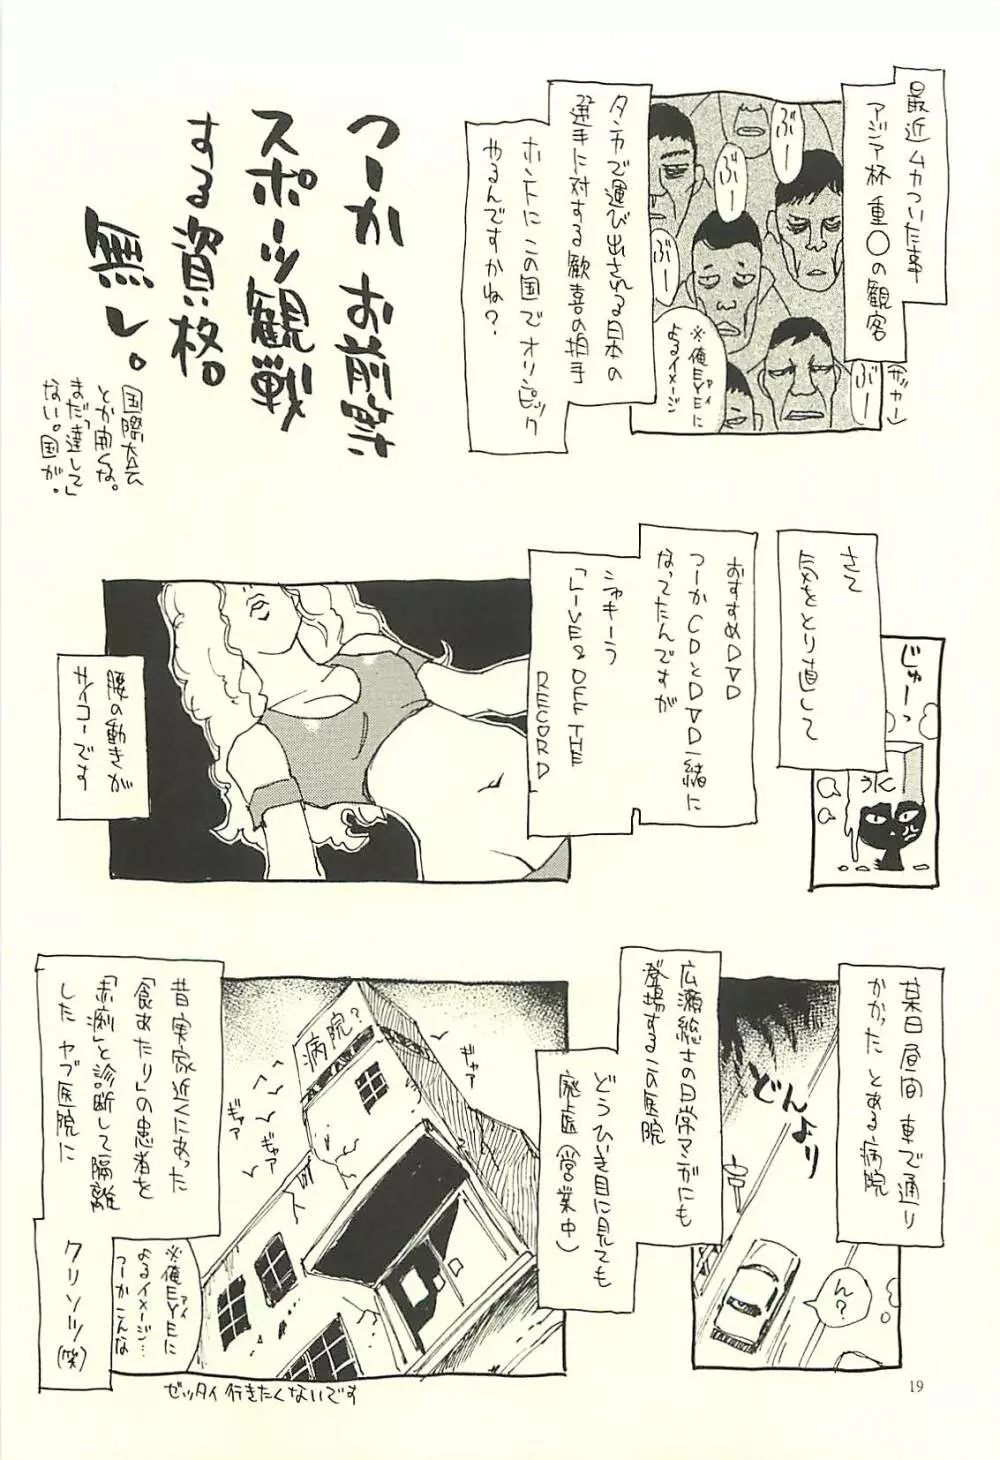 最近ムカついた事
アジア杯 重〇の観客
(サッカー)
ぶー
ぶー
ぶー
ぶー
※俺EYEに
アイ
よるイメージ
タンカで運び出される日本の
選手に対する歓喜の拍手
ホントにこの国でオリンピック
やるんですかね?
つーか お前等
スポーツ観戦
する資格
無し。
国際大会
とか開くな。
まだ達して
ない。国が。
さて
気をとり直して
じゅーっ
氷
おすすめDVD
つーかCDとDVD一緒に
なってたんですが
シャキーラ
「LIVE&OFF THE
RECORD」
腰の動きが
サイコーです
某日昼間 車で通り
かかった とある病院
どんより
ん?
広瀬総士の日常マンガにも
登場するこの医院
どうひいき目に見ても
廃墟(営業中)
病院?
ギャア
ギャア
ギャア
昔実家近くにあった
「食あたり」の患者を
「赤痢」と診断して隔離
した ヤブ医院に
クリソツ(笑)
※俺EYEに
アイ
よるイメージ…
つーかこんな
ゼッタイ行きたくないです
19